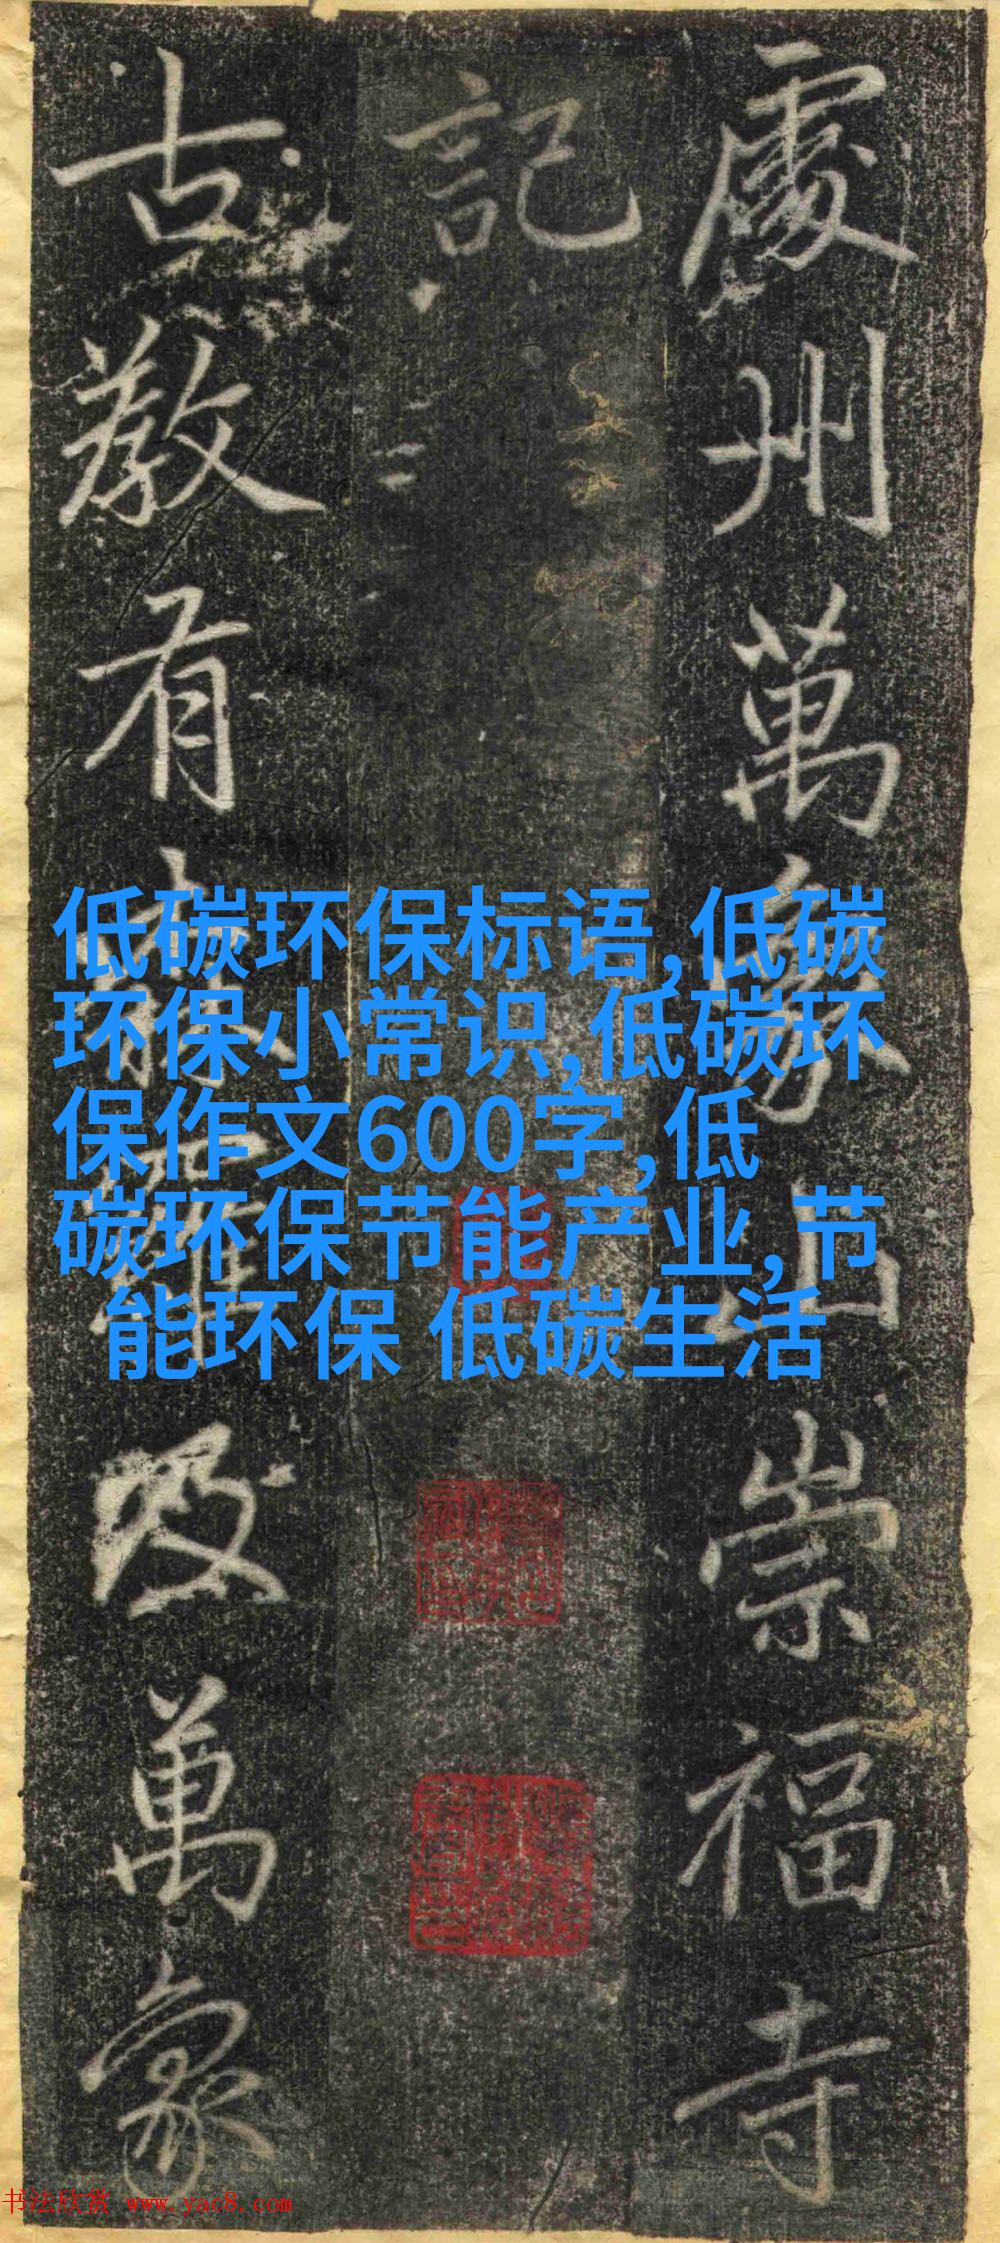 處州萬象山崇福寺
記
古教有萬象
低碳环保标语,低碳
环保小常识,低碳环
保作文600字,低
碳环保节能产业,节
能环保 低碳生活
书法欣赏 www.yac8.com